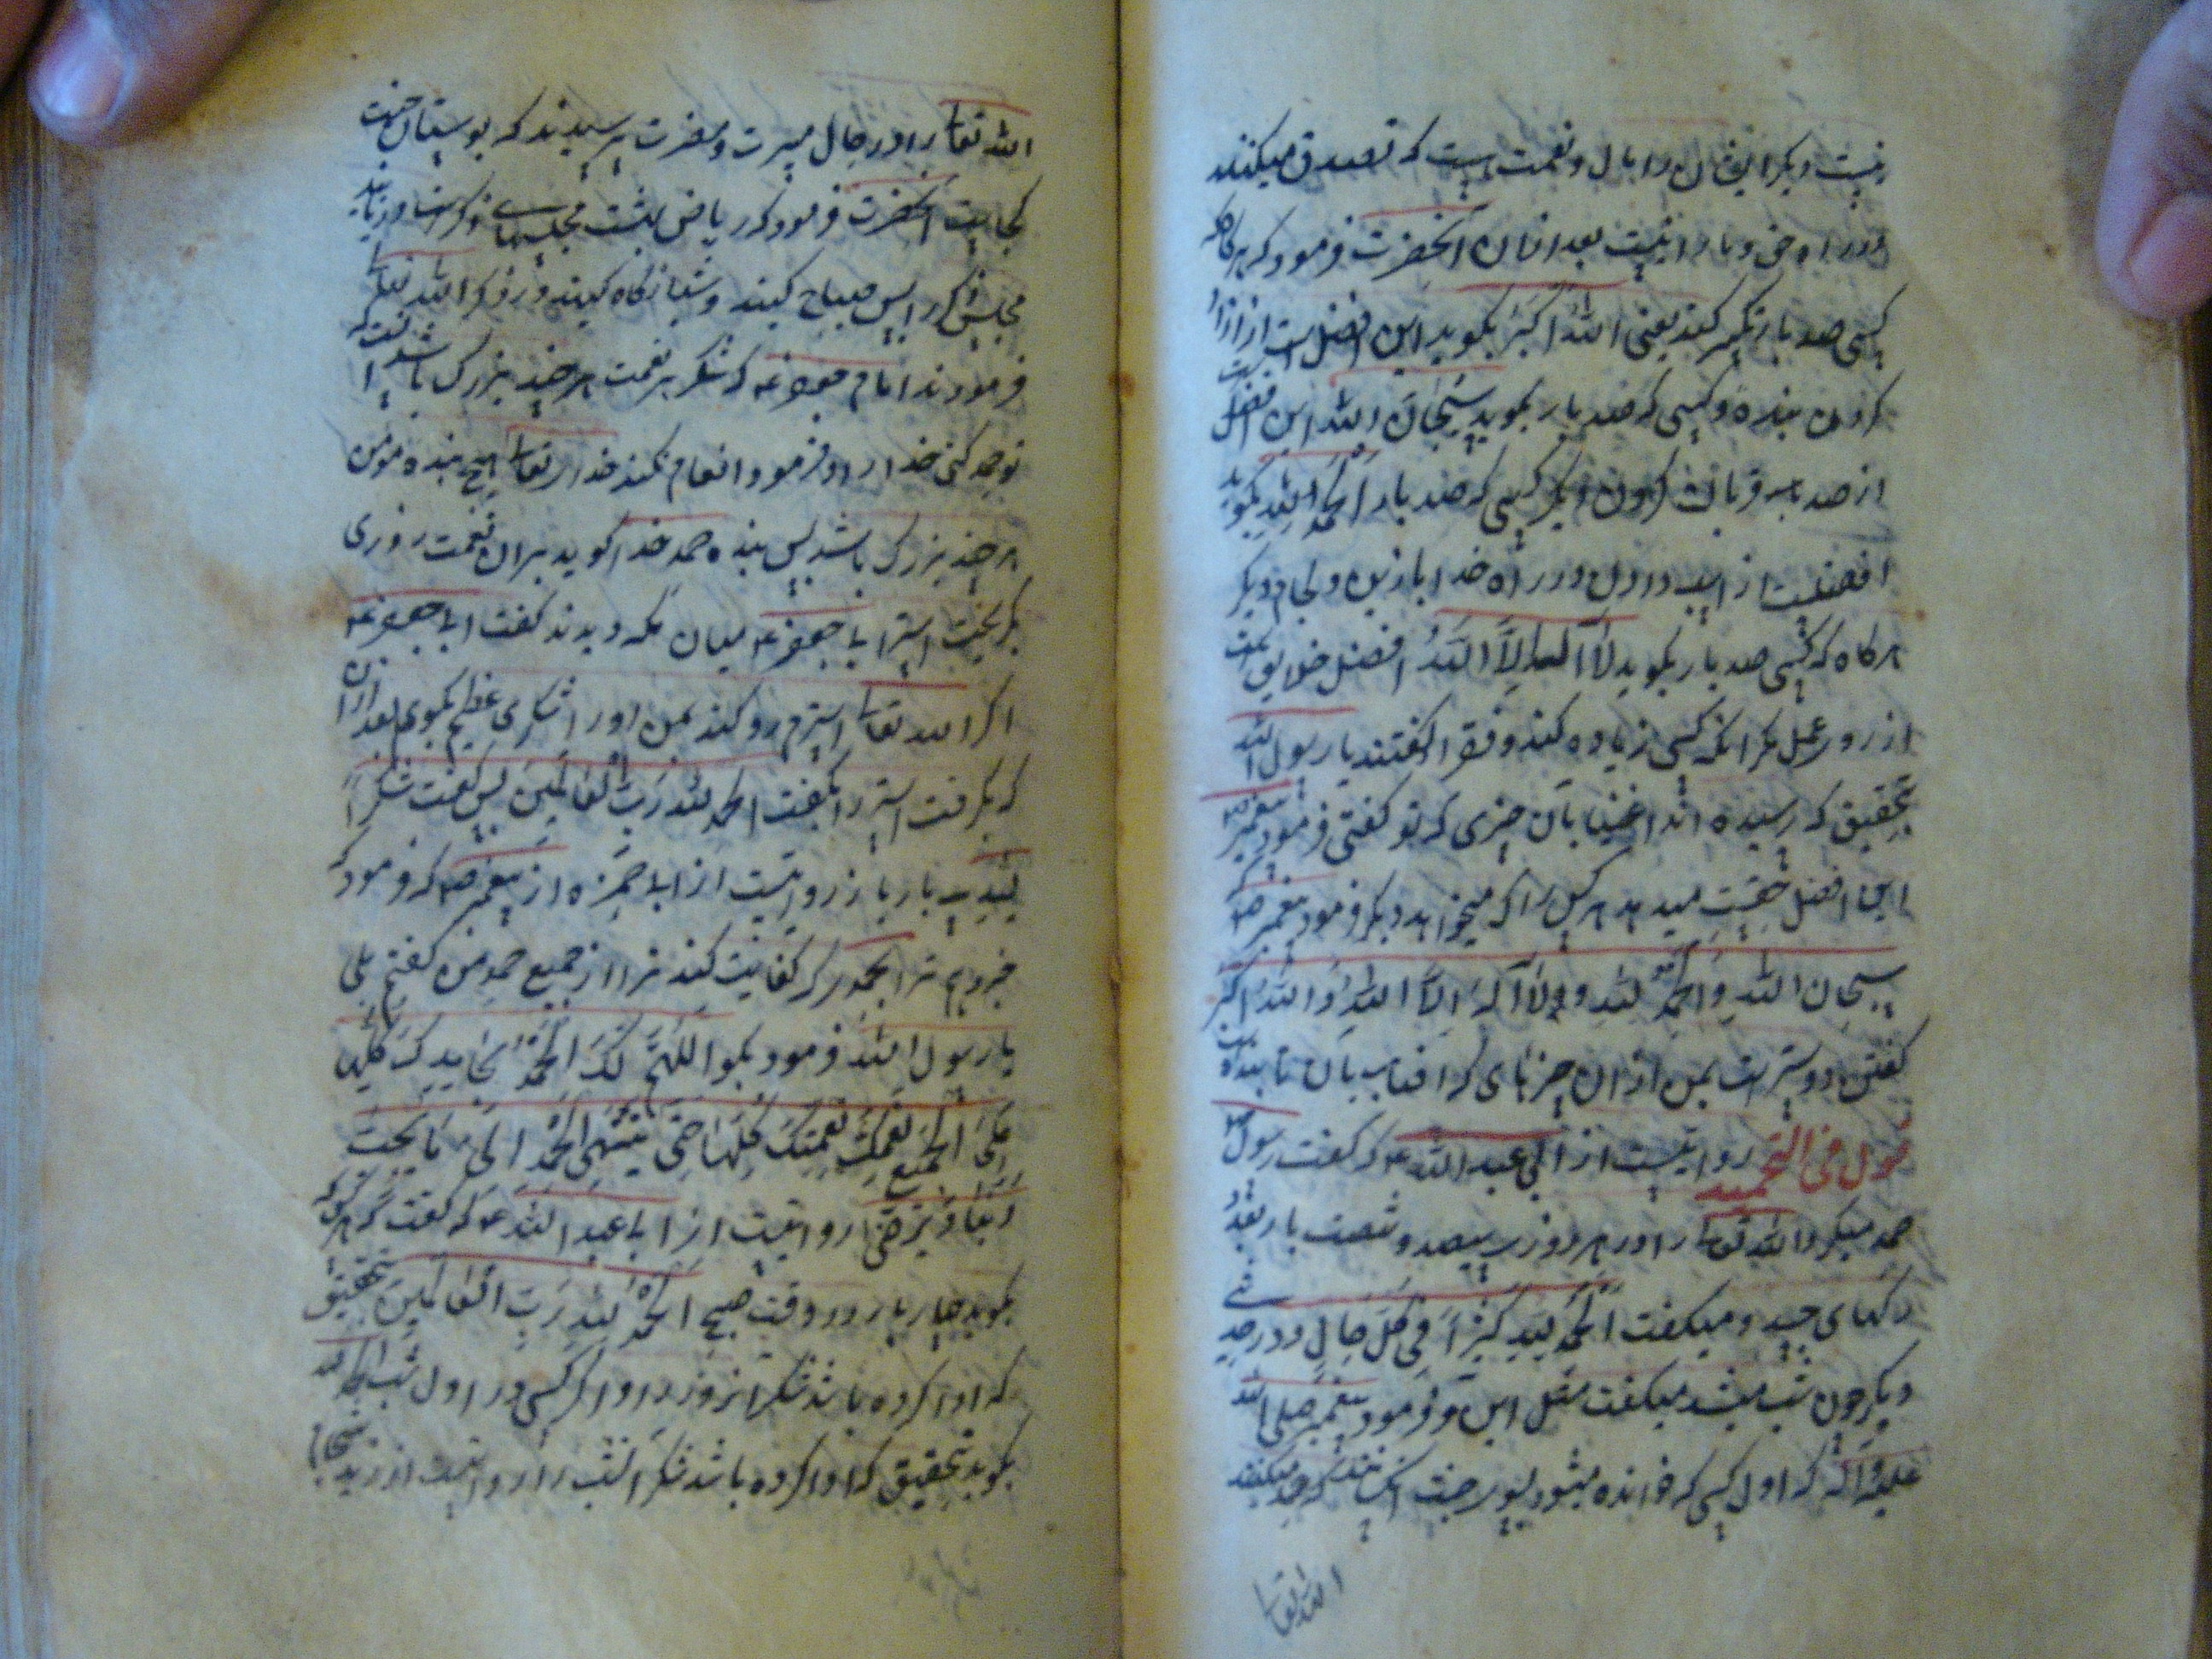 نیست دیگر ایشان را مال و نعمت هست که تصدق میکنند
در راه حق و ما را نیست بعد از آن آنحضرت فرمود که هرگاه
کسی صد بار تکبیر کند یعنی الله اکبر بگوید این افضل است از آزاد
کردن بنده و کسی که صد بار بگوید سبحان الله این افضل است
از صد قربان کردن و دیگر کسی که صد بار الحمد لله بگوید
افضلست از اسب دادن در راه خدا با زین و لجام و دیگر
هرگاه که کسی صد بار بگوید لا اله الا الله افضل خلایق است
از روی عمل مگر آنکه کسی زیاده کند و فقرا گفتند یا رسول الله
تحقیق که رسیده اند اغنیا بآن چیزی که تو گفتی فرمود پیغمبر ص
این افضل حقست میدهد هر کس را که میخواهد دیگر فرمود پیغمبر ص
سبحان الله والحمد لله ولا اله الا الله والله اکبر
گفتن دوسترست بمن از آن چیزهای که آفتاب بآن تابنده است
قول فی التحمید روایتست از ابی عبد الله ع که گفت رسول ص
حمد میکرد الله تعالی را در هر روز سیصد و شصت بار بعدد
رگهای جسد و میگفت الحمد لله کثیرا فی کل حال و در
دیگر چون شب میشد میگفت مثل این و فرمود پیغمبر صلی الله
علیه وآله که اول کسی که خوانده میشود بسوی جنت آنکسانند که حمد میکنند
الله تعالی
الله تعالی را در حال مسرت و مضرت پرسیدند که بوستان جنت
کجاست آنحضرت فرمود که ریاض بهشت مجلسهای ذکرست
مجلس ذکر پس صباح کنند و شبانگاه کنند در ذکر الله تعالی
فرمودند امام جعفر ع که شکر هر نعمت هر چند بزرگ باشد آنست که
توحمد کنی خدا را و فرمود انعام نکند خدای تعالی هیچ بنده مومن
هر چند بزرگ باشد پس بنده حمد خدا گوید بر آن نعمت روزی
بگریخت استر ابا جعفر ع میان مکه و مدینه گفت ابا جعفر ع
اگر الله تعالی استرم رد کند بمن او را شکری عظیم بگویم بعد از آن
که بگرفت استر را بگفت الحمد لله رب العالمین پس گفت شکرا
لله سه بار باز روایتست از ابا حمزه از پیغمبر ص که فرمود که
خبر دهم ترا بحمد که کفایت کند ترا از جمیع حمد من گفتم بلی
یا رسول الله فرمود بگو اللهم لک الحمد بمحامدک کلها
علی جمیع نعمک کلها حتی ینتهی الحمد الی ما تحب
ربنا و ترضی روایتست از ابا عبد الله ع که گفت که هر که
بگوید چهار بار در وقت صبح الحمد لله رب العالمین تحقیق
که ادا کرده باشد شکر آنروز را و اگر کسی در اول شب
بگوید تحقیق که ادا کرده باشد شکر آنشب را روایتست از زید